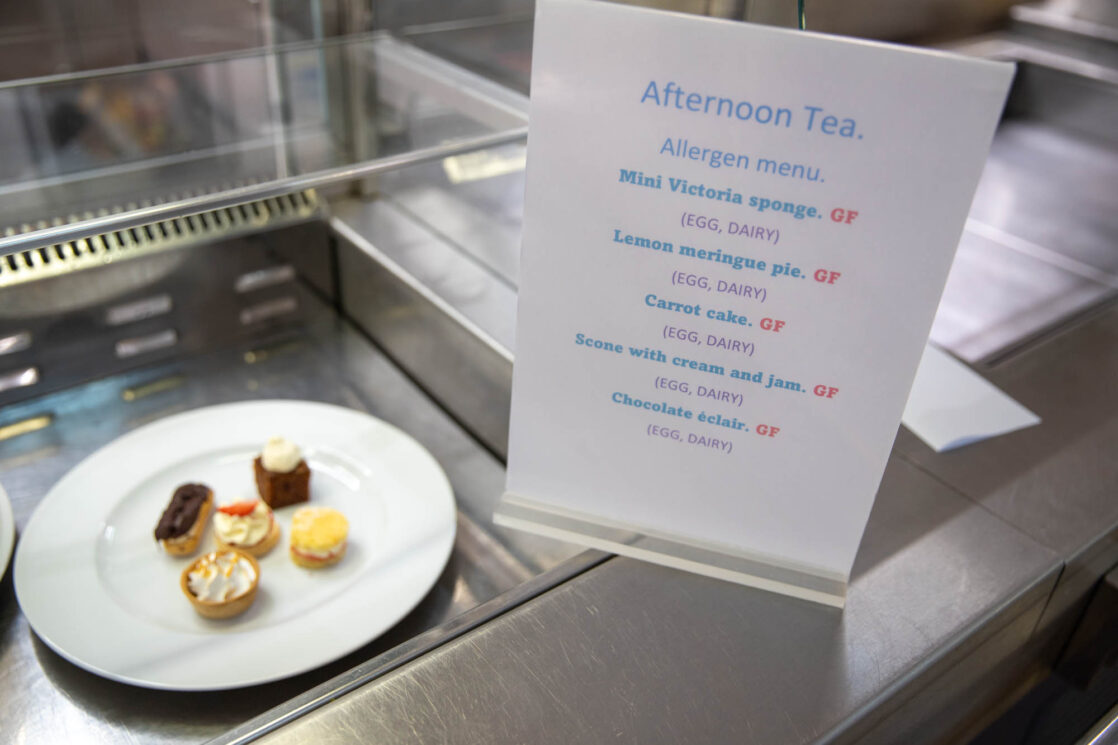 Afternoon Tea.
Allergen menu.
Mini Victoria sponge. GF
(EGG, DAIRY)
Lemon meringue pie. GF
(EGG, DAIRY)
Carrot cake. GF
(EGG, DAIRY)
Scone with cream and jam. GF
(EGG, DAIRY)
Chocolate éclair. GF
(EGG, DAIRY)